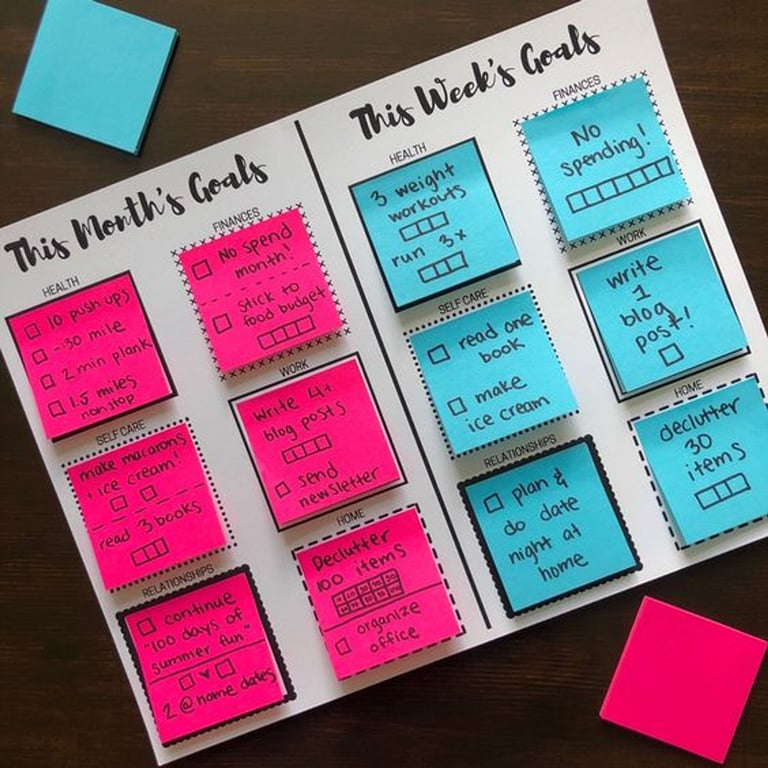 This Month's Goals
HEALTH
10 push ups
-:30 mile
2 min plank
1.5 miles
nonstop
FINANCES
No spend
month!
stick to
food budget
SELF CARE
make macarons
+ ice cream!
read 3 books
WORK
write 4+
blog posts
send
newsletter
RELATIONSHIPS
continue
"100 days of
summer fun"
2 @ home dates
HOME
Declutter
100 items
organize
office
This Week's Goals
HEALTH
3 weight
workouts
run 3x
FINANCES
No
spending!
SELF CARE
read one
book
make
ice cream
WORK
write
1
blog
post!
RELATIONSHIPS
plan &
do date
night at
home
HOME
declutter
30
items